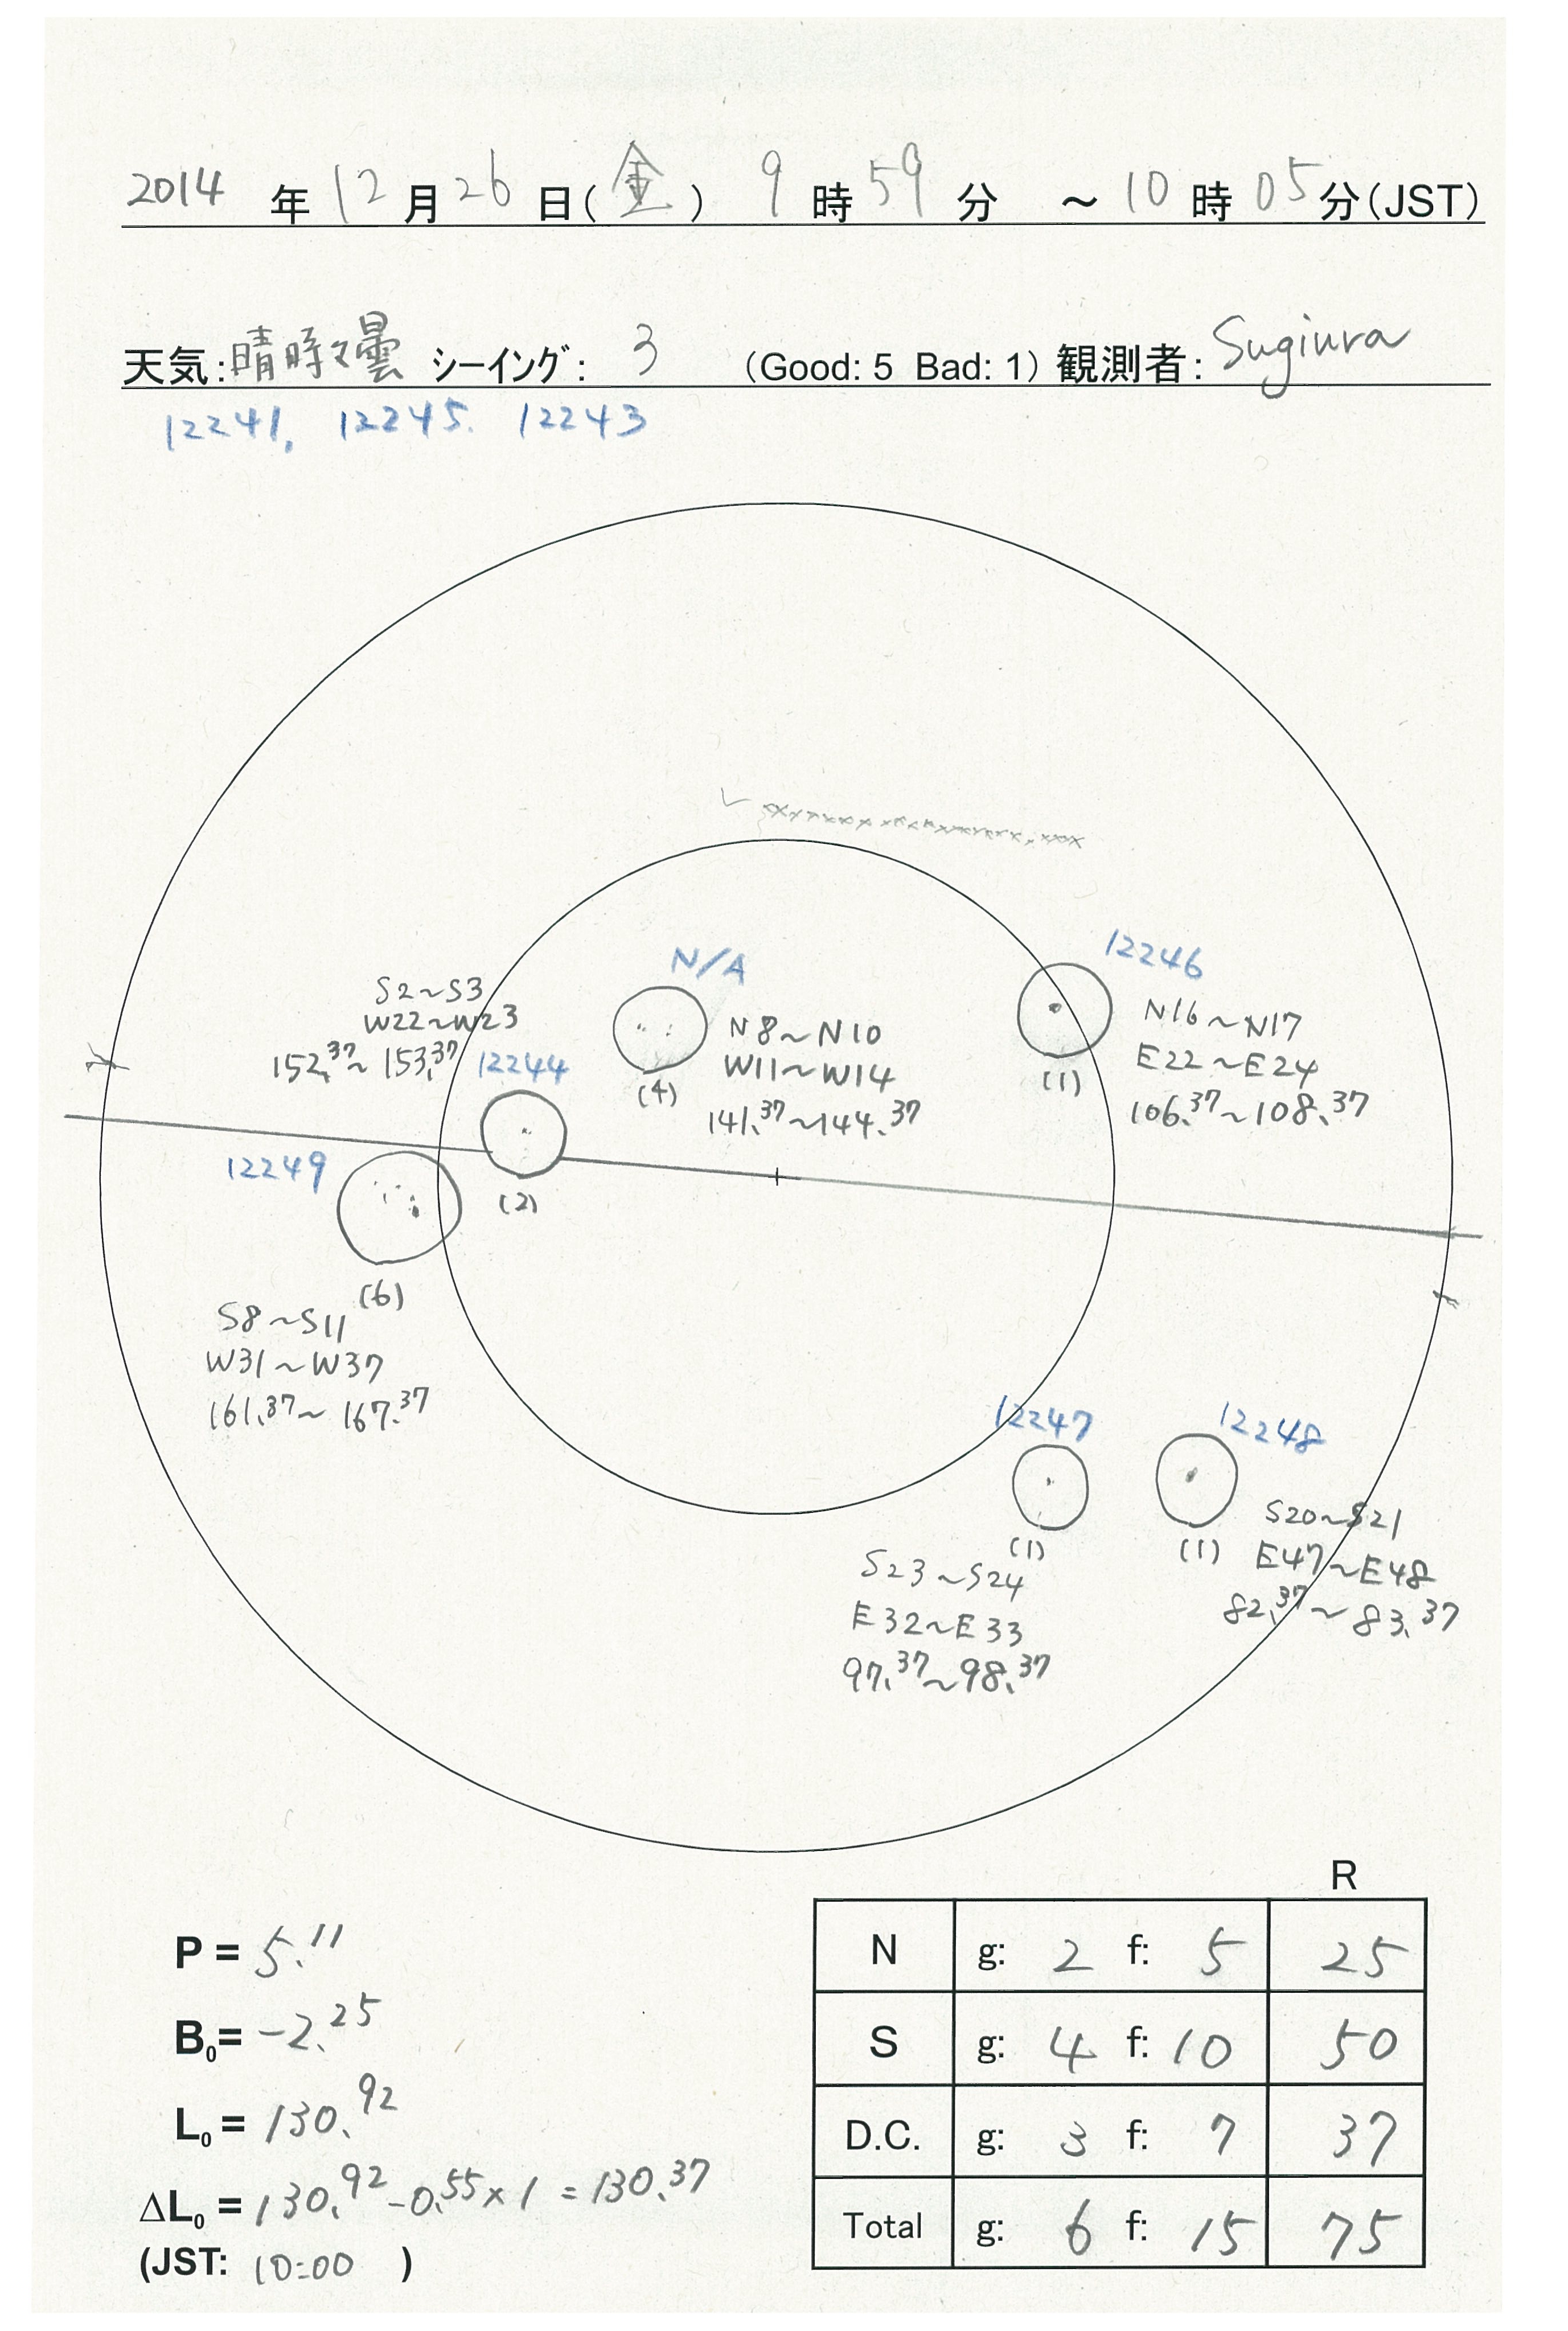 2014 年 12 月 26 日(金) 9 時 59 分 ～ 10 時 05 分(JST)
天気:晴時々曇 シーイング: 3 (Good: 5 Bad: 1) 観測者: Sugiura
12241, 12245. 12243
12246
N/A
S2~S3
W22~W23
152.37~153.37
12244
(2)
N8~N10
W11~W14
141.37~144.37
(4)
N16~N17
E22~E24
106.37~108.37
(1)
12249
(6)
S8~S11
W31~W37
161.37~167.37
12247
(1)
S23~S24
E32~E33
97.37~98.37
12248
(1)
S20~S21
E47~E48
82.37~83.37
R
P = 5.11
B0= -2.25
L0 = 130.92
ΔL0 = 130.92-0.55×1 = 130.37
(JST: 10:00 )
N g: 2 f: 5 25
S g: 4 f: 10 50
D.C. g: 3 f: 7 37
Total g: 6 f: 15 75